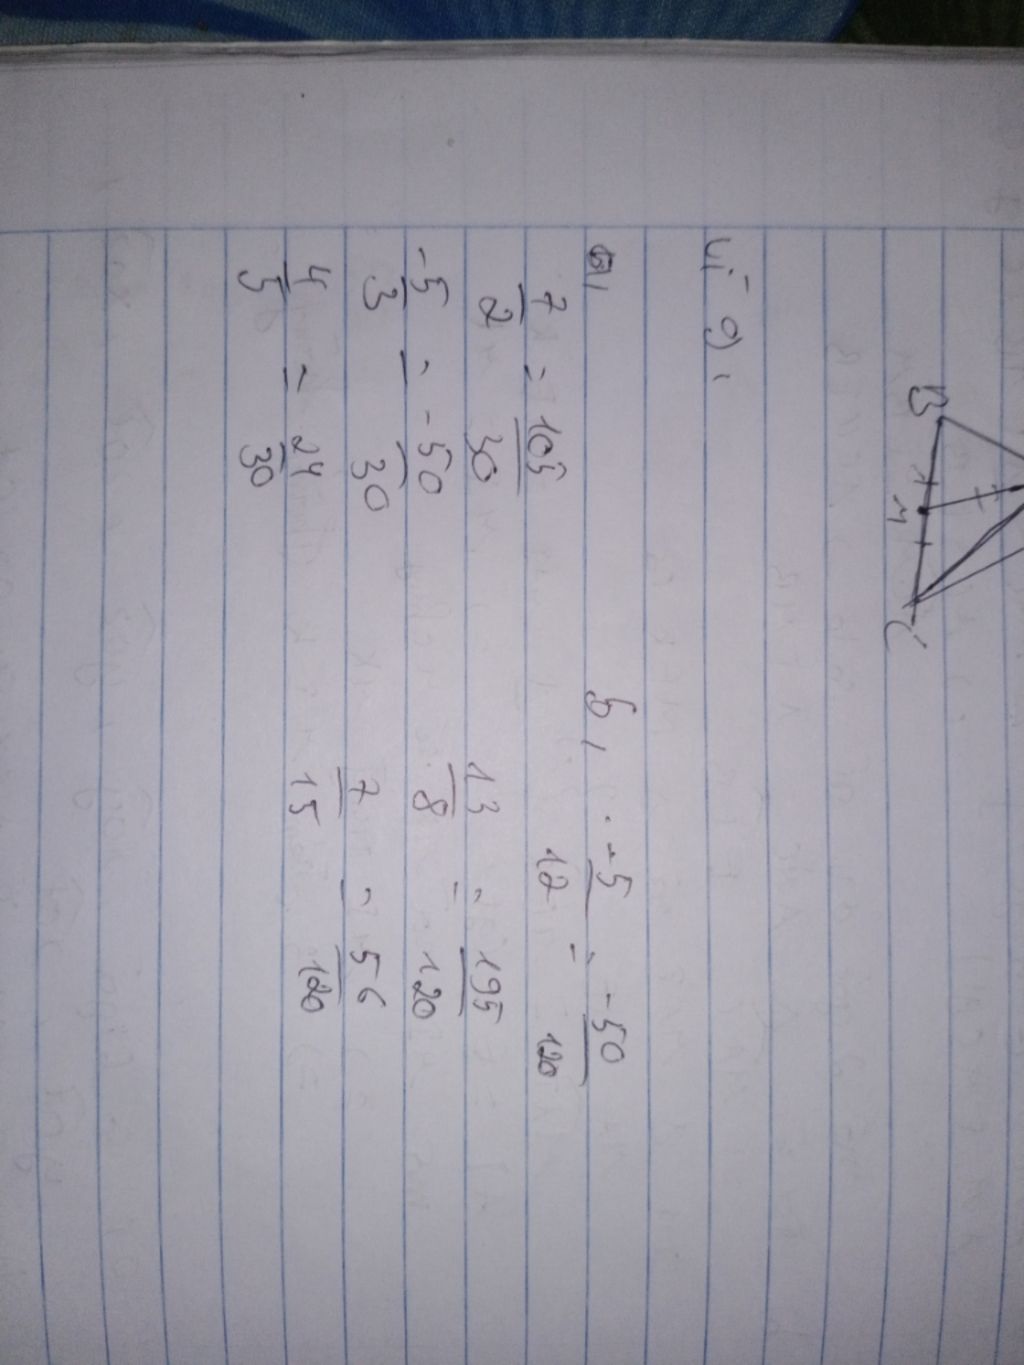 B
M
C
a,
7/2 = 105/30
-5/3 = -50/30
4/5 = 24/30
b,
-5/12 = -50/120
13/8 = 195/120
7/15 = 56/120